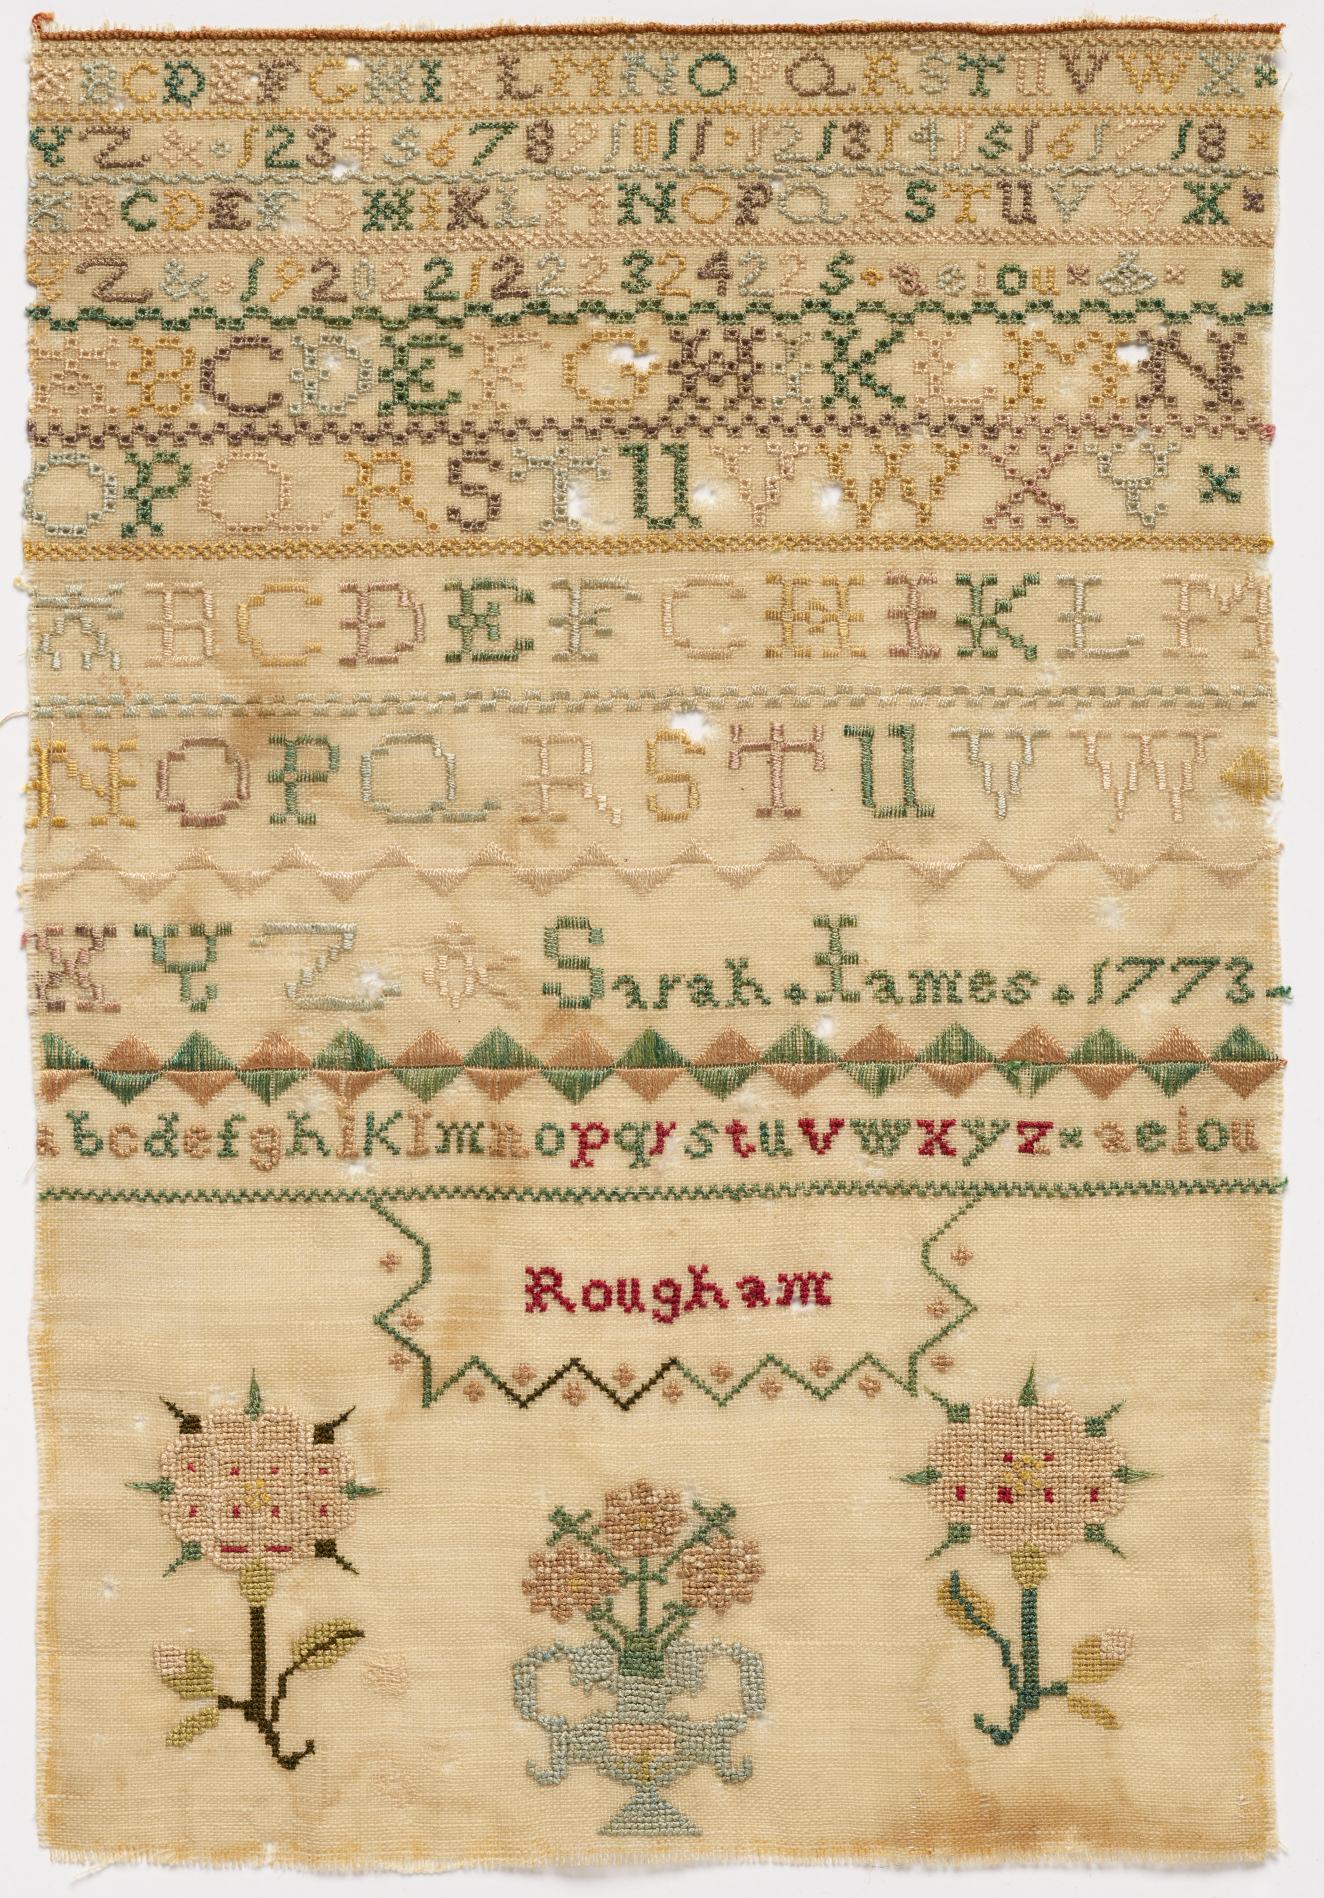 A B C D E F G H I K L M N O P Q R S T U V W X
Y Z & 1 2 3 4 5 6 7 8 9 10 11 · 12 13 14 15 16 17 18
A B C D E F G H I K L M N O P Q R S T U V W X
Y Z & · 19 20 22 21 22 22 23 24 22 5 · a e i o u
A B C D E F G H I K L M N
O P Q R S T U V W X Y
A B C D E F G H I K L M
N O P Q R S T U V W
X Y Z & Sarah · Iames · 1773
a b c d e f g h i k l m n o p q r s t u v w x y z a e i o u
Rougham